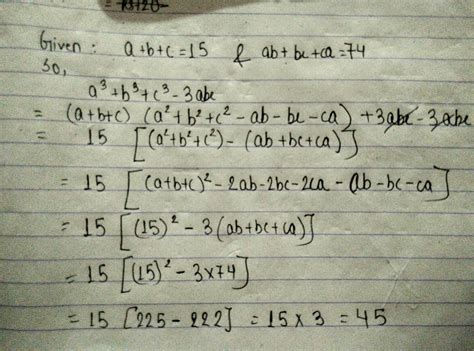 Given : a+b+c=15 & ab+bc+ca=74
So,
a³+b³+c³-3abc
= (a+b+c) (a²+b²+c²-ab-bc-ca) +3abc-3abc
= 15 [(a²+b²+c²)-(ab+bc+ca)]
= 15 [(a+b+c)²-2ab-2bc-2ca-ab-bc-ca]
= 15 [(15)²-3(ab+bc+ca)]
= 15 [(15)²-3×74]
= 15 [225-222] = 15×3 = 45